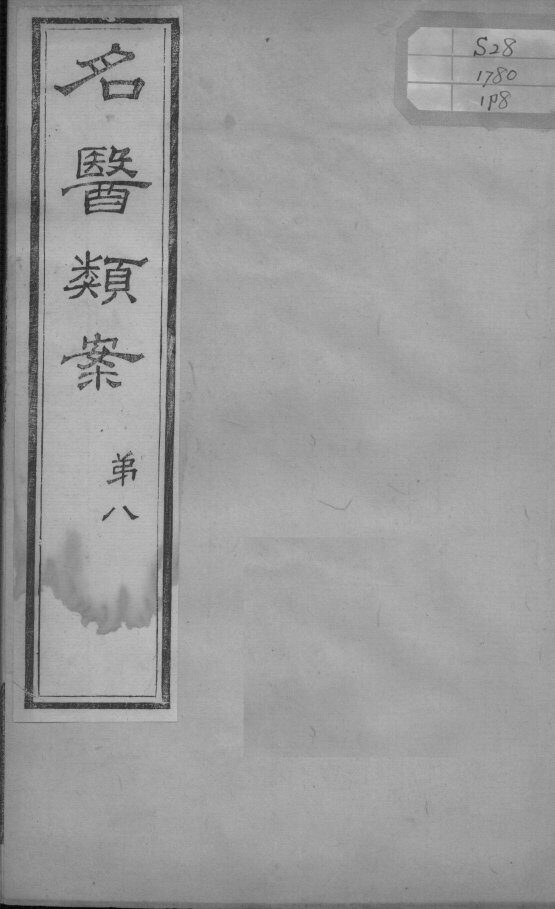 名醫類案
弟八
S28
1780
1P8